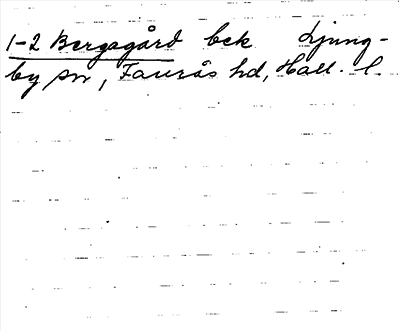 1-2 Bergagård bek Ljung-
by sn, Faurås hd, Hall. l.